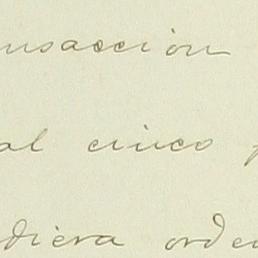 nsaccion
al cinco p
diera orde